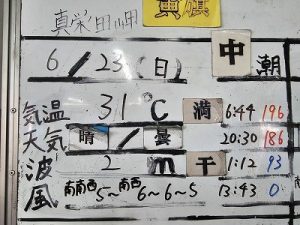 真栄田岬 黄旗
6/23(日) 中潮
気温 31℃ 満 6:44 196
天気 晴/曇 20:30 186
波 2m 干 1:12 93
風 南南西5~南西6~6~5 13:43 0